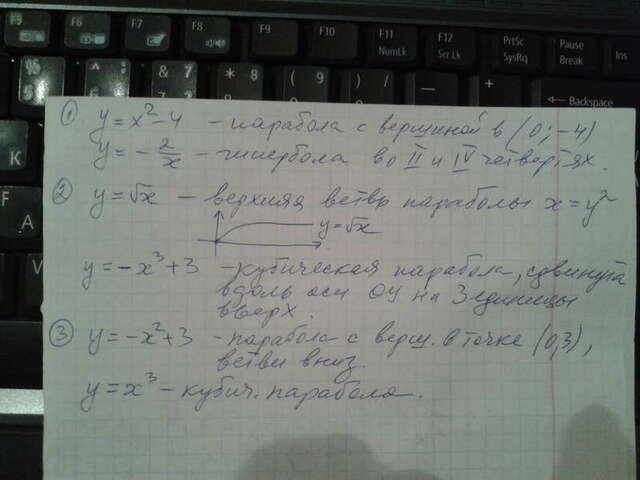 F5 F6 F7 F8 F9 F10 F11 F12 PrtSc Pause Ins
NumLk Scr Lk SysRq Break
% 5 & 7 * 8 ( 9 ) / - +
Backspace
К
F
А
① y = x² - 4 - парабола с вершиной в (0; -4)
y = - 2/x - гипербола во II и IV четвертях.
② y = √x - верхняя ветвь параболы x = y²
y = √x
y = -x³ + 3 - кубическая парабола, сдвинута
вдоль оси OY на 3 единицы
вверх.
③ y = -x² + 3 - парабола с верш. в точке (0,3),
ветви вниз.
y = x³ - кубич. парабола.